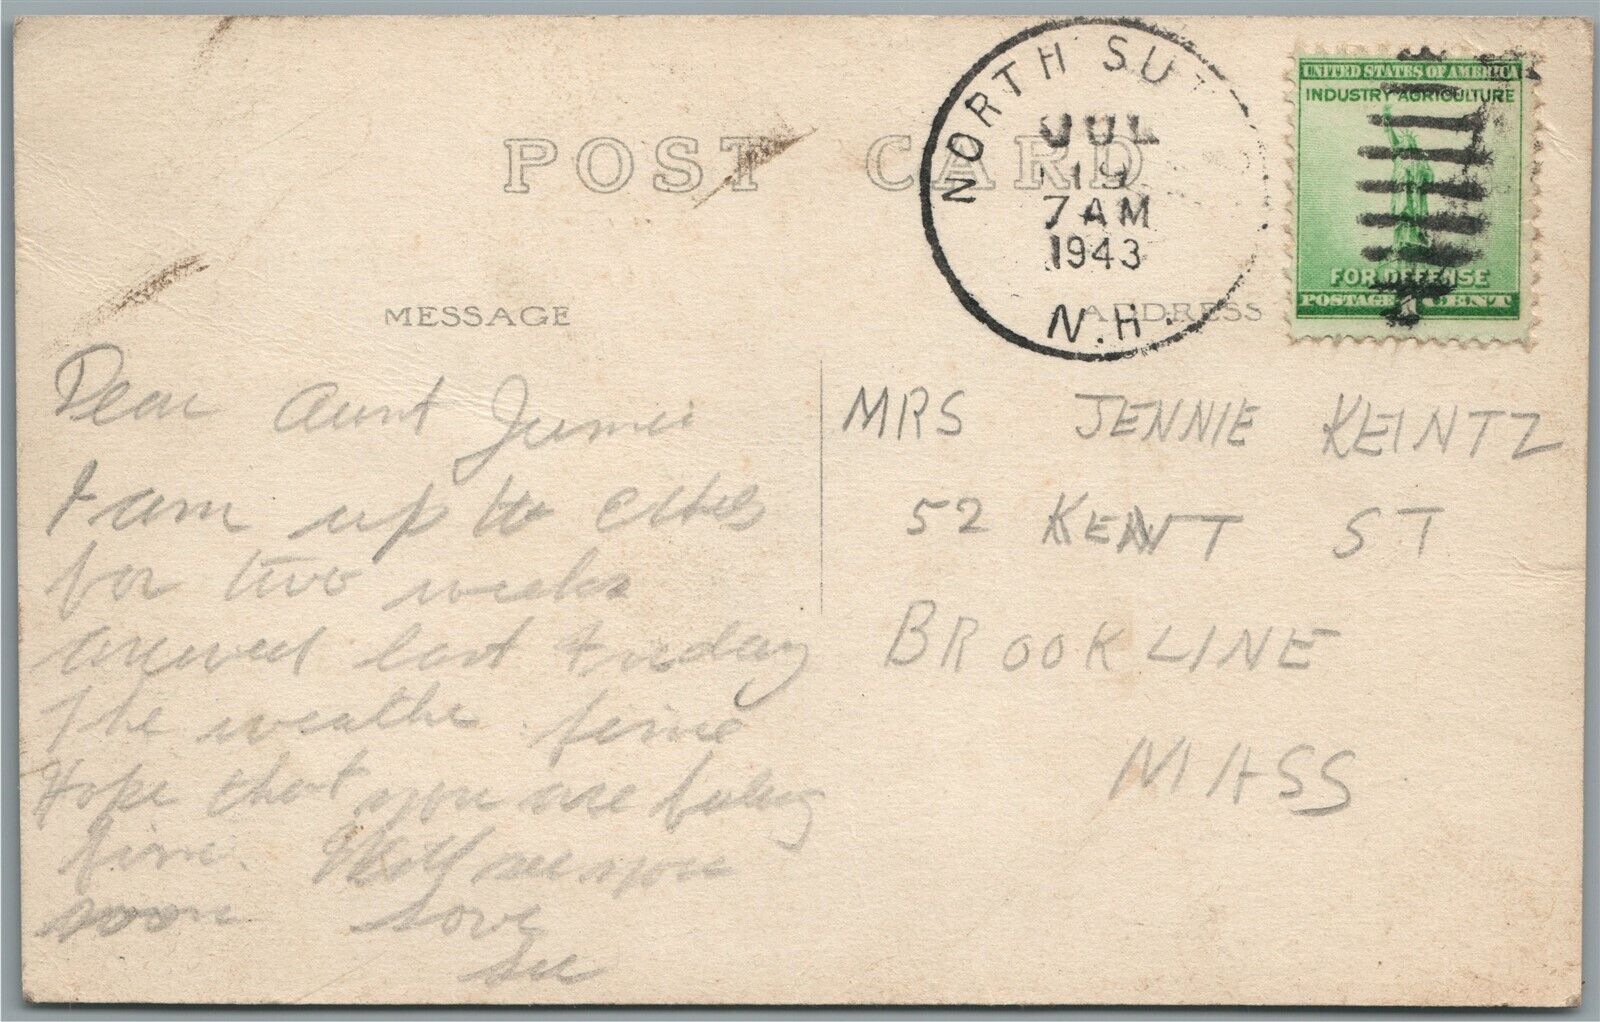 POST CARD
NORTH SUT
JUL
19
7 AM
1943
N.H.
UNITED STATES OF AMERICA
INDUSTRY AGRICULTURE
FOR DEFENSE
POSTAGE 1 CENT
MESSAGE
ADDRESS
Dear Aunt Jennie
I am up to
for two weeks
last Friday
The weathe fine
Hope that you are
fine. Will see you
soon Love
MRS JENNIE KEINTZ
52 KENT ST
BROOKLINE
MASS